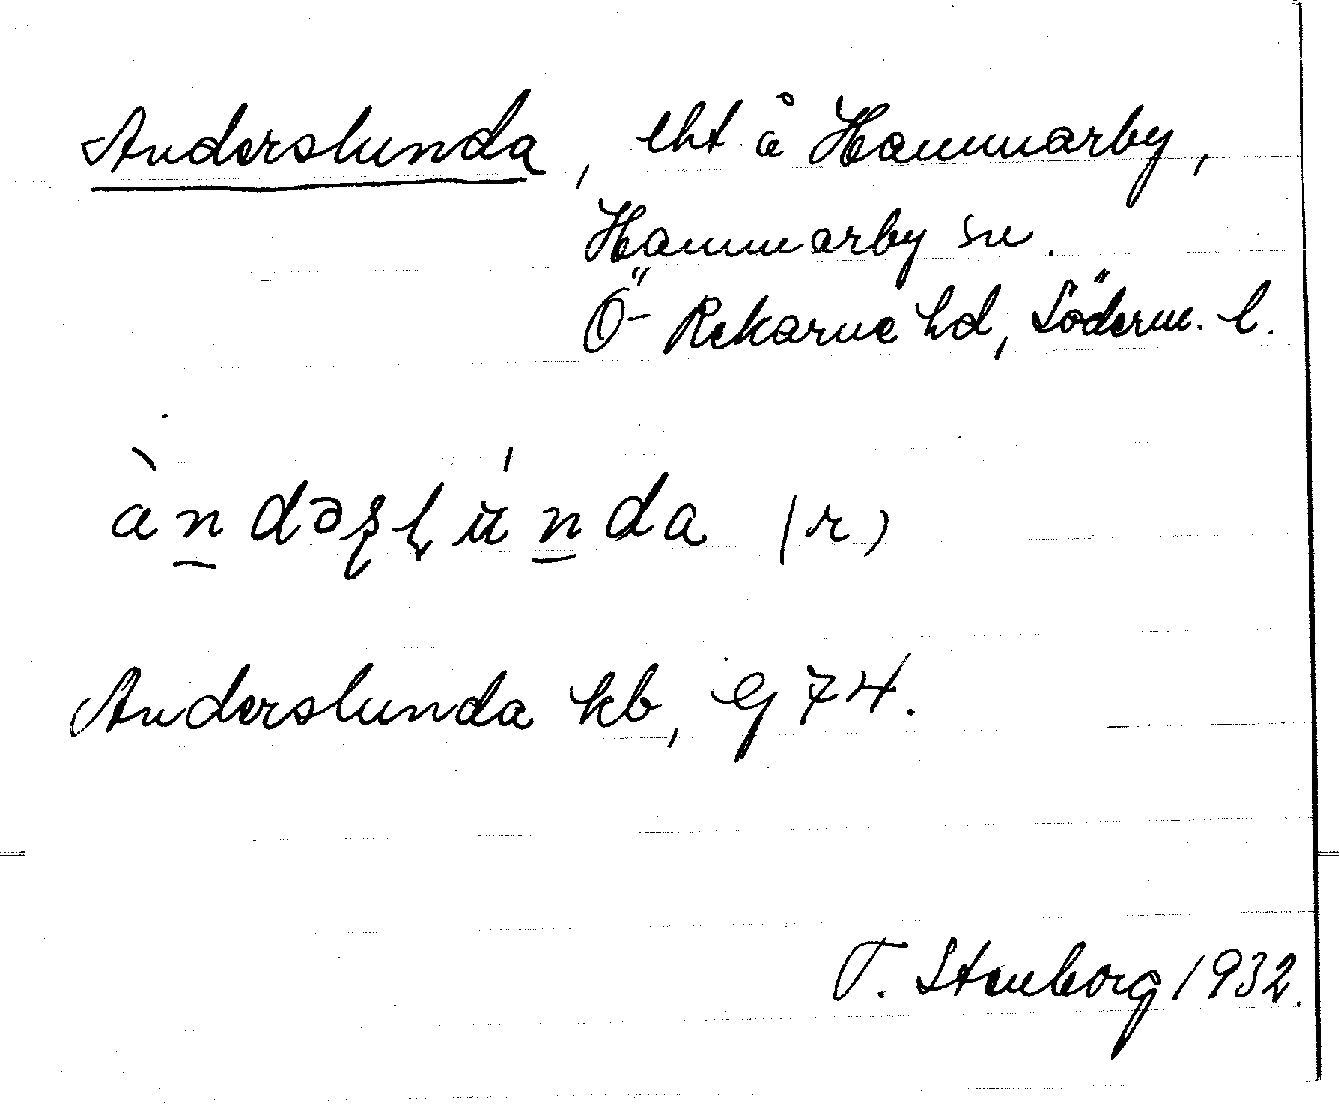 Anderslunda, lht å Hammarby,
Hammarby sn.
Ö- Rekarne hd, Söderm. l.
àndəʂɭúnda (r)
Anderslunda kb, Eg 74.
T. Stenborg 1932.